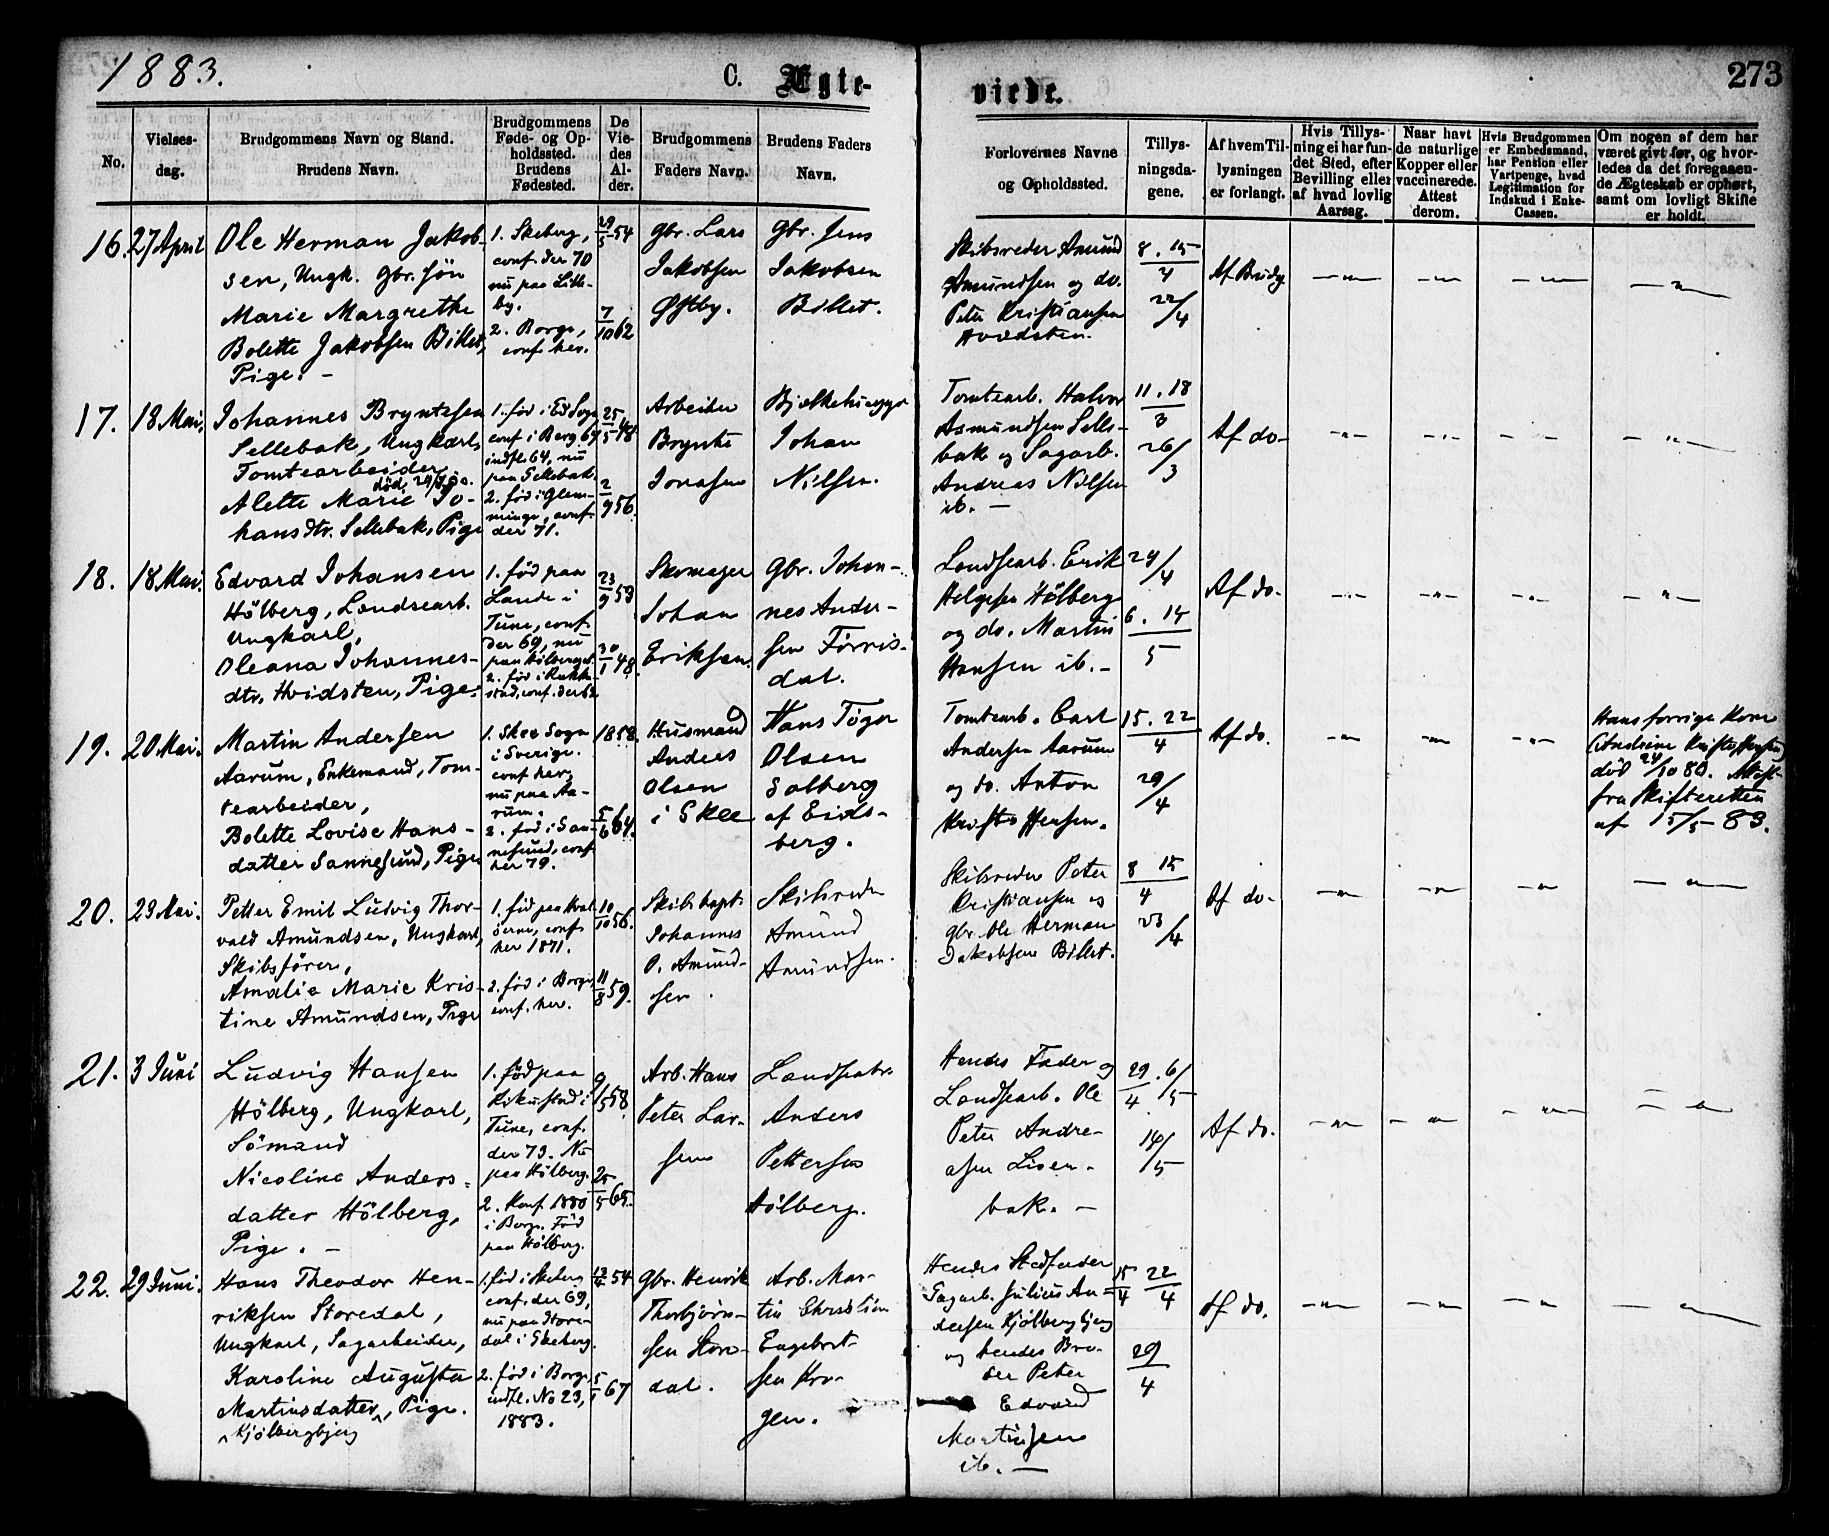 1883.
C. Ægte-
viede.
273
No.
Vielses-
dag.
Brudgommens Navn og Stand.
Brudens Navn.
Brudgommens
Føde- og Op-
holdssted.
Brudens
Fødested.
De
Vie-
des
Al-
der.
Brudgommens
Faders Navn.
Brudens Faders
Navn.
Forlovernes Navne
og Opholdssted.
Tillys-
ningsda-
gene.
Af hvem Til-
lysningen
er forlangt.
Hvis Tillys-
ning ei har fun-
det Sted, efter
Bevilling eller
af hvad lovlig
Aarsag.
Naar havt
de naturlige
Kopper eller
vaccinerede.
Attest
derom.
Hvis Brudgommen
er Embedsmand,
har Pension eller
Vartpenge, hvad
Legitimation for
Indskud i Enke-
Cassen.
Om nogen af dem har
været givt før, og hvor-
ledes da det foregaaen-
de Ægteskab er ophørt,
samt om lovligt Skifte
er holdt.
16.
27 April
Ole Herman Jakob-
sen, Ungk. Gbr. søn
Marie Margrethe
Bolette Jakobsen Billet,
Pige. -
1. Skeberg,
conf. der 70
nu paa Lille-
by.
2. Borge,
conf. her.
29/5 54
7/10 62
Gbr. Lars
Jakobsen
Østby.
Gbr. Jens
Jakobsen
Billet.
Skibsreder Amund
Amundsen og do.
Peter Kristiansen
Hvidsten.
8. 15/4
22/4
Af Brudg.
17.
18 Mai.
Johannes Bryntesen
Sellebak, Ungkarl,
Tomtearbeider
Alette Marie Jo-
hansdtr. Sellebak, Pige
1. fød i Ed Sogn
conf. i Berg 64
indfl. 64, nu
paa Sellebak.
2. fød i Glem-
minge, conf.
der 71.
25/5 48
2/9 56.
Arbeider
Brynte
Jonasen
Bjelkehugger
Johan
Nilsen.
Tomtearb. Halvor
Asmundsen Selle-
bak og Sagarb.
Andreas Nilsen
ib. -
11. 18/3
26/3
Af do-
18.
18 Mai.
Edvard Johansen
Hölberg, Landsearb.
Ungkarl,
Oleana Johannes-
dtr. Hvidsten, Pige.
1. fød paa
Lande i
Tune, conf.
der 69, nu
paa Hölberget.
2. fød i Rakke-
stad, conf. der 62
23/9 53
30/1 48.
Skomager
Johan
Eriksen.
Gbr. Johan-
nes Ander-
sen Førris-
dal.
Landsearb. Erik
Helgesen Hölberg
og do. Martin
Hansen ib. -
24/4
6. 14/5
Af do-
19.
20 Mai.
Martin Andersen
Aarum, Enkemand, Tom-
tearbeider,
Bolette Lovise Hans-
datter Sannesund, Pige
1. Skee Sogn
i Sverige.
conf. her,
nu paa Aa-
rum.
2. fød i San-
nesund, conf.
her 79.
1858.
5/6 64.
Husmand
Anders
Olsen
i Skee
Hans Tøger
Olsen
Solberg
af Eids-
berg.
Tomtearb. Carl
Andersen Aarum
og do. Anton
Kristoffersen.
15. 22/4
29/4
Af do.
Hans forrige Kone
(Andrine Kristoffersen)
død 24/10 80. Attest
fra Skifteretten
af 5/5 83.
20.
23 Mai.
Petter Emil Ludvig Thor-
vald Amundsen, Ungkarl,
Skibsfører,
Amalie Marie Kris-
tine Amundsen, Pige
1. fød paa Hval-
öerne, conf.
her 1871.
2. fød i Borge
conf. her.
10/10 56.
11/8 59.
Skibskapt.
Johannes
O. Amund-
sen.
Skibsreder
Amund
Amundsen.
Skibsreder Peter
Kristiansen og
gbr. Ole Herman
Jakobsen Billet.
8 15/4
23/4
Af do-
21.
3 Juni
Ludvig Hansen
Hölberg, Ungkarl,
Sömand
Nicoline Anders-
datter Hölberg,
Pige. -
1. fød paa
Tune, conf.
der 73. Nu
paa Hölberg.
2. Konf. 1880
i Borge. Fød
paa Hölberg.
9/5 58
25/5 65.
Arb. Hans
Peter Lar-
sen
Landsearb.
Anders
Pettersen
Hölberg.
Hendes Fader og
Landsearb. Ole
Peter Andre-
asen Lisen-
bak. -
29/4. 6/5
14/5
Af do.
22.
29 Juni.
Hans Theodor Hen-
riksen Storedal,
Ungkarl, Sagarbeider,
Karoline Augusta
Martinsdatter, Pige.
Kjölbergbjerg
1. fød i Skeberg
conf. der 69,
nu paa Store-
dal i Skeberg.
2. fød i Borge
indfl. No 23,
1883.
12/4 54
5/1 67
Gbr. Henrik
Thorbjørn-
sen Store-
dal.
Arb. Mar-
tin Christian
Engebret-
sen Kro-
gen.
Hendes Stedfader
Sagarb. Julius An-
dersen Kjölbergbjerg
og hendes Bro-
der Peter
Edvard
Martinsen
ib. -
15/4 22/4
29/4
Af do.